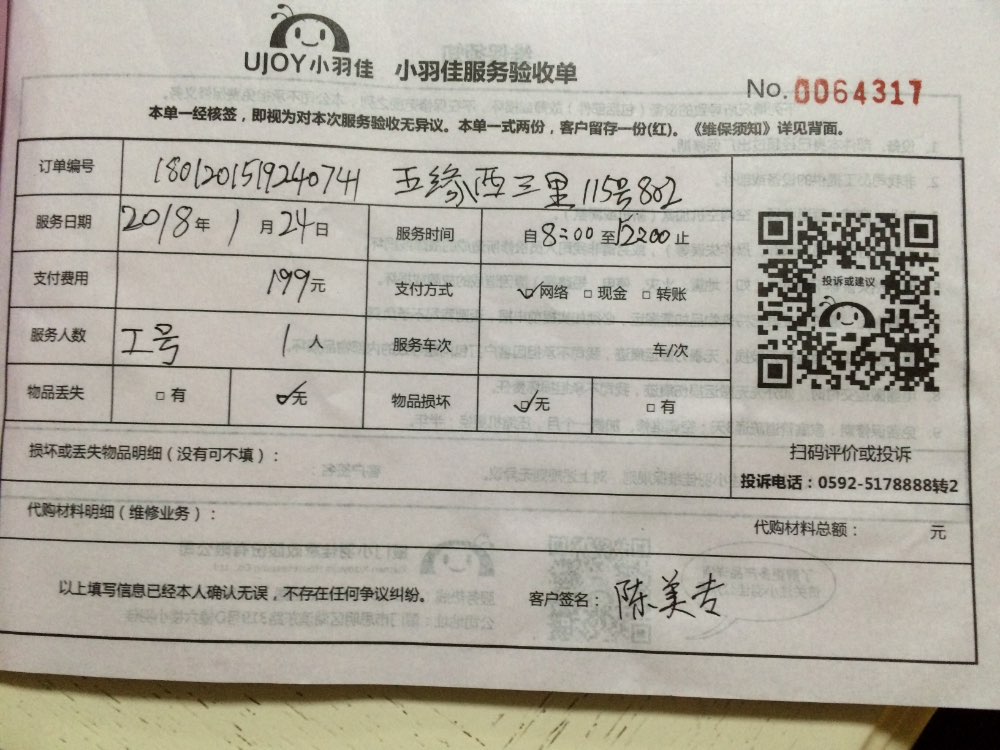 UJOY小羽佳 小羽佳服务验收单
No. 0064317
本单一经核签，即视为对本次服务验收无异议。本单一式两份，客户留存一份(红)。《维保须知》详见背面。
订单编号 180120151924074 五缘西三里115号802
服务日期 2018年1月24日 服务时间 自8:00至12:00止
支付费用 199元 支付方式 ☑网络 □现金 □转账
投诉或建议
服务人数 工号 1人 服务车次 车/次
物品丢失 □有 ☑无 物品损坏 ☑无 □有
损坏或丢失物品明细（没有可不填）：
扫码评价或投诉
投诉电话：0592-5178888转2
代购材料明细（维修业务）：
代购材料总额： 元
以上填写信息已经本人确认无误，不存在任何争议纠纷。 客户签名：陈美吉